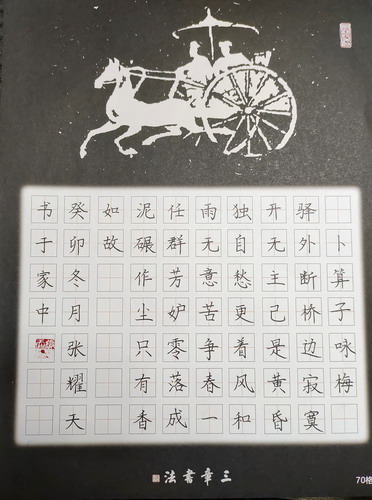 卜算子咏梅
驿外断桥边寂寞
开无主己是黄昏
独自愁更着风和
雨无意苦争春一
任群芳妒零落成
泥碾作尘只有香
如故
癸卯冬月张耀天
书于家中
三章書法
70格